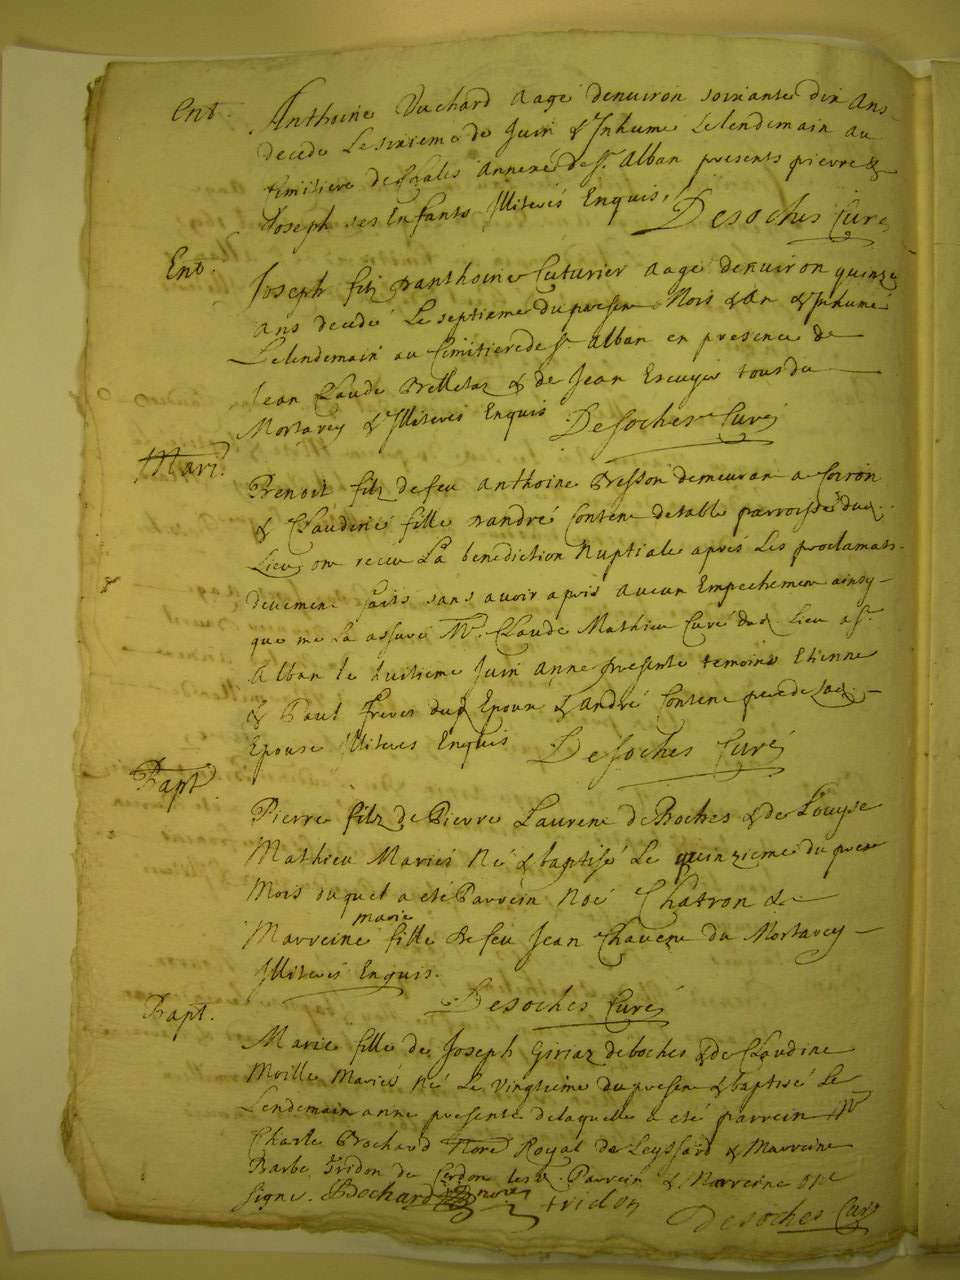 Ent. Anthoine Vuchard aagé denuiron soixante dix ans
decedé Le sixieme de Juin & Inhumé Lelendemain au
Cimitiere de annexé de St. Alban presents pierre &
Joseph ses Enfants Illiterés Enquis, Desoches Curé
Ent. Joseph filz danthoine Cuturier aagé denuiron quinze
ans decedé Le septieme du present Mois & an & Inhumé
Lelendemain au Cimitiere de St. Alban en presence de
Jean Claude Belletaz & de Jean Escuyer tous du
Mortarey & Illiterés Enquis Desoches Curé
Mari. Benoit filz de feu Anthoine Bresson demeurant a
& Claudine fille dandré Contene detable parroisse dud.
Lieu ont receu La benediction Nuptiale aprés Les proclamats.
deuement faits sans auoir apris aucun Empechement ainsy
que me La assuré Mr. Claude Mathieu Curé dud. Lieu a St.
Alban le huitieme Juin anné presente temoins Etienne
& Paul freres dud. Epoux & andré Contene pere de lad.
Epouse Illiteres Enquis Desoches Curé
Bapt. Pierre filz de Pierre Laurent de Boches & de Louyse
Mathieu Mariés Né & baptisé Le quinzieme du present
Mois duquel a eté Parrein Noé Chatron &
Marreine marie fille de feu Jean Chauent du Mortarey
Illiterés Enquis.
Desoches Curé
Bapt. Marie fille de Joseph Giriaz deboches & de Claudine
Moille Mariés Né Le Vingtieme du present & baptisé Le
Lendemain anné presente delaquelle a eté parrein Mr
Charle Bochard Nore Royal de Leyssard & Marreine
Barbe Tridon de Cerdon lesd. Parrein & Marreine ont
signé. Bochard nore tridon Desoches Curé